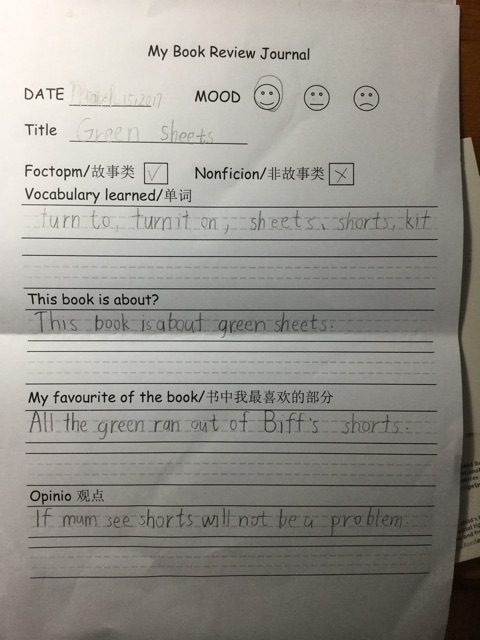 My Book Review Journal
DATE March,15,2017 MOOD
Title Green sheets
Foctopm/故事类 Nonficion/非故事类
Vocabulary learned/单词
turn to, turn it on, sheets、shorts, kit
This book is about?
This book is about green sheets.
My favourite of the book/书中我最喜欢的部分
All the green ran out of Biff's shorts.
Opinio 观点
If mum see shorts will not be a problem